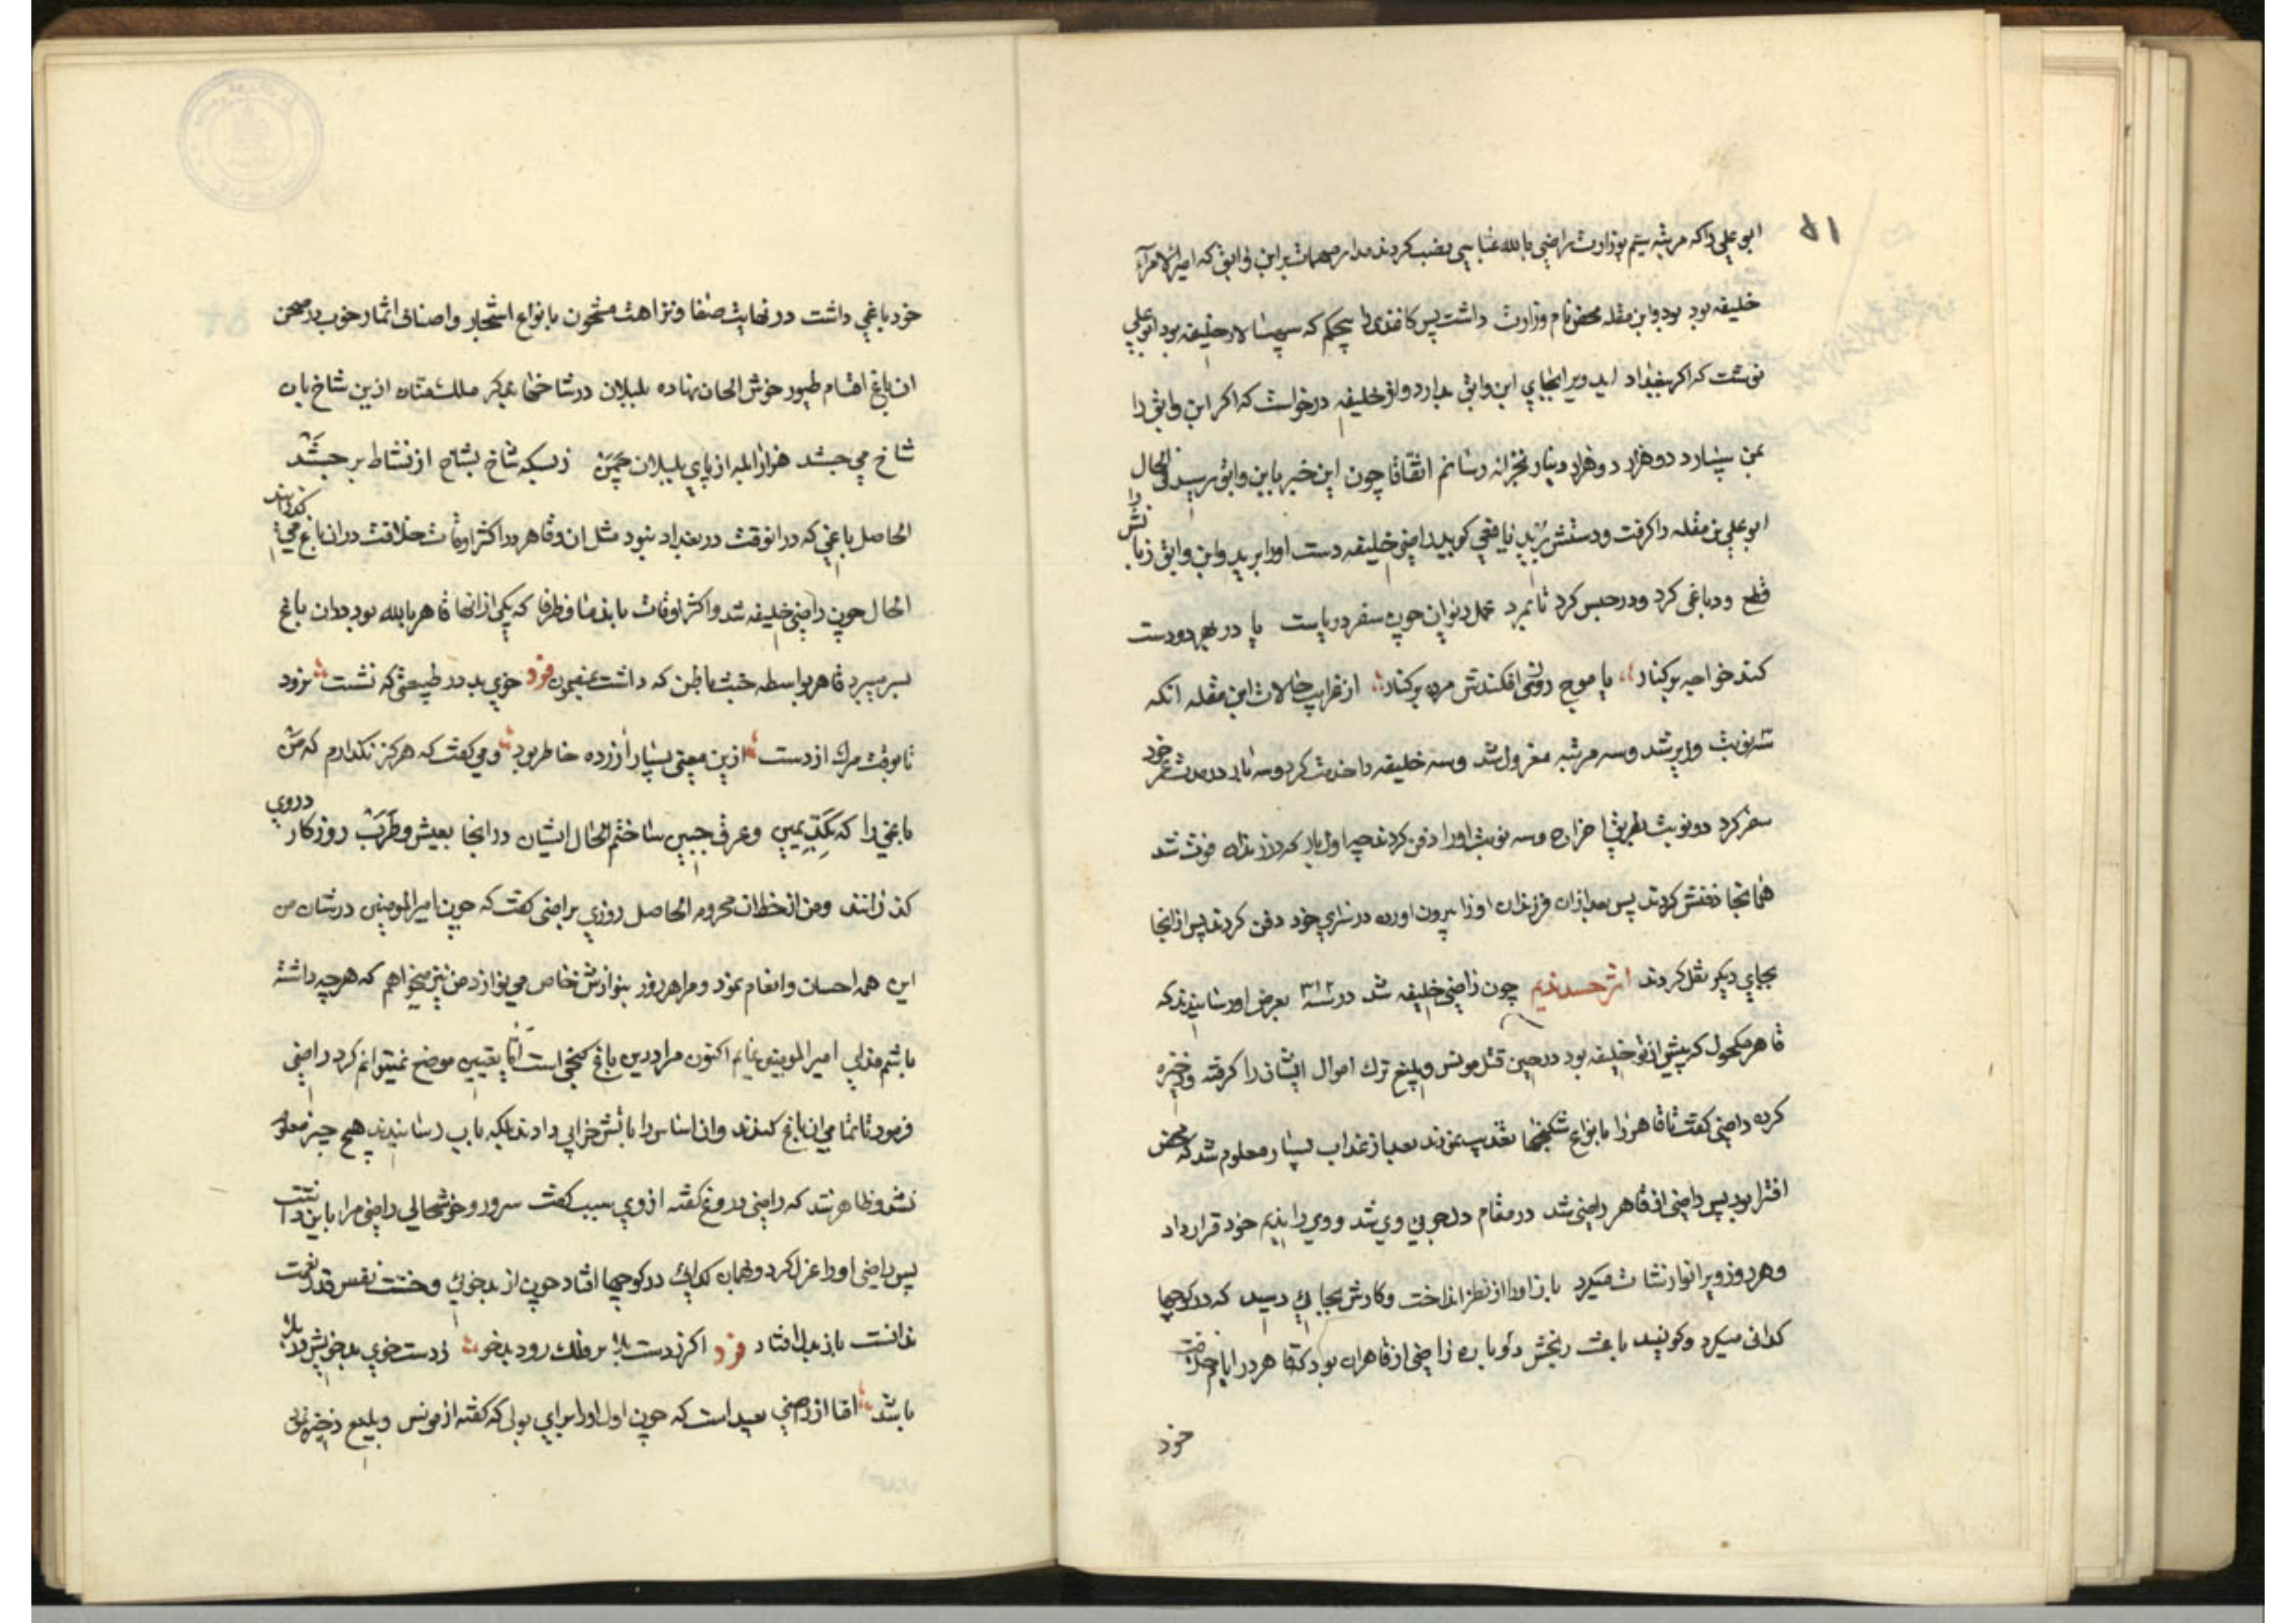 ابو علی را که مرتبه سیم بوزارت راضی بالله عباسی نصب کردند مدار مهمات بر ابن رایق که امیر الامراء
خلیفه بود بود و ابن مقله محض نام وزارت داشت پس کاغذی بیحکم که سپهسالار خلیفه بود ابو علی
نوشت که اکر ببغداد اید ویرا بجای ابن وایق بدارد و از خلیفه درخواست که اکر ابن وایق را
بمن سپارد دو هزار دو هزار دینار بخزانه رسانم اتفاقا چون این خبر بابن وایق رسید فی الحال
ابو علی بن مقله را کرفت و دستش برید یافعی کوید راضی خلیفه دست او را برید و ابن وایق زبانش را
قطع و دباغی کرد و در حبس کرد تا بمرد عمل دیوان چون سفر دریاست یا در بهر دو دست
کند خواجه بر کنار یا موج روزی افکندش مرده بر کنار از غرایب حالات ابن مقله انکه
سه نوبت وزیر شد و سه مرتبه معزول شد و سه خلیفه را خدمت کرد و سه بار در مدت عمر خود
سفر کرد دو نوبت بطریق اخراج و سه نوبت او را دفن کردند چه اول بار که در زندان فوت شد
همانجا دفنش کردند پس بعد ازان فرزندان او را بیرون اورده در سرای خود دفن کردند پس از انجا
بجای دیکر نقل کردند اثر حسد ندیم چون راضی خلیفه شد در سنه ۳۱۲ بعرض او رسانیدند که
قاهر مکحول که پیش از تو خلیفه بود در حین قتل مونس و بلیغ ترک اموال ایشان را کرفته و ذخیره
کرده راضی کفت تا قاهر را بانواع شکنجها تعذیب نمودند بعد از عذاب بسیار معلوم شد که محض
افترا بود پس راضی از قاهر راضی شد در مقام دلجویی وی شد و وی را ندیم خود قرار داد
و هر روز ویرا نوازشات میکرد باز او را از نظر انداخت و کارش بجایی رسید که در کوچها
کدائی میکرد و کویند باعث رنجش دوباره راضی از قاهر ان بود که قاهر در ایام خلافت
خود
خود باغی داشت در نهایت صفا و نزاهت مشحون بانواع اشجار و اصناف اثمار خوب در صحن
ان باغ اقسام طیور خوش الحان نهاده بلبلان در شاخها ازین شاخ بان
شاخ می جستند هزار ابله از پای بلبلان چمن زبسکه شاخ بشاخ از نشاط بر جستند
الحاصل باغی که در انوقت در بغداد نبود مثل ان و قاهر در اکثر اوقات خلافت دران باغ می کذرانید
الحال چون راضی خلیفه شد و اکثر اوقات با ندما و ظرفا که یکی از انها قاهر بالله بود دران باغ
بسر میبرد قاهر بواسطه خبث باطن که داشت بمضمون فرد خوی بد در طبیعتی که نشست نرود
تا بوقت مرک از دست ازین معنی بسیار ازرده خاطر بود و می کفت که هرکز نکذارم که من
باغی را که بکد یمین و عرق جبین ساختم الحال ایشان در انجا بعیش و طرب روزکار دروی
کذرانند و من از حظ ان محروم الحاصل روزی براضی کفت که چون امیر المومنین در شان من
این همه احسان و انعام نمود و مرا هر روز بنوازش خاص می نوازد من نیز میخواهم که هر چه داشته
باشم فدای امیر المومنین نمایم اکنون مرا درین باغ کنجی است اما تعیین موضع نمیتوانم کرد راضی
فرمود تا تمامی ان باغ کندند و ان اساس را باتش خرابی دادند بلکه باب رسانیدند هیچ چیز معلوم
نشد و ظاهر شد که راضی دروغ کفته از وی سبب کفت سرور و خوشحالی راضی مرا باین داشت
پس راضی او را عزل کرد و همان کدائی در کوچها افتاد چون از بدخوئی و خست نفس قدر نعمت
ندانست باز بدان افتاد فرد اکر ز دست بلا بر فلک رود بدخو ز دست خوی بد خویش در بلا
باشد اما از راضی بعید است که چون اول او را برای پولی که کفته از مونس و بلیع ذخیره